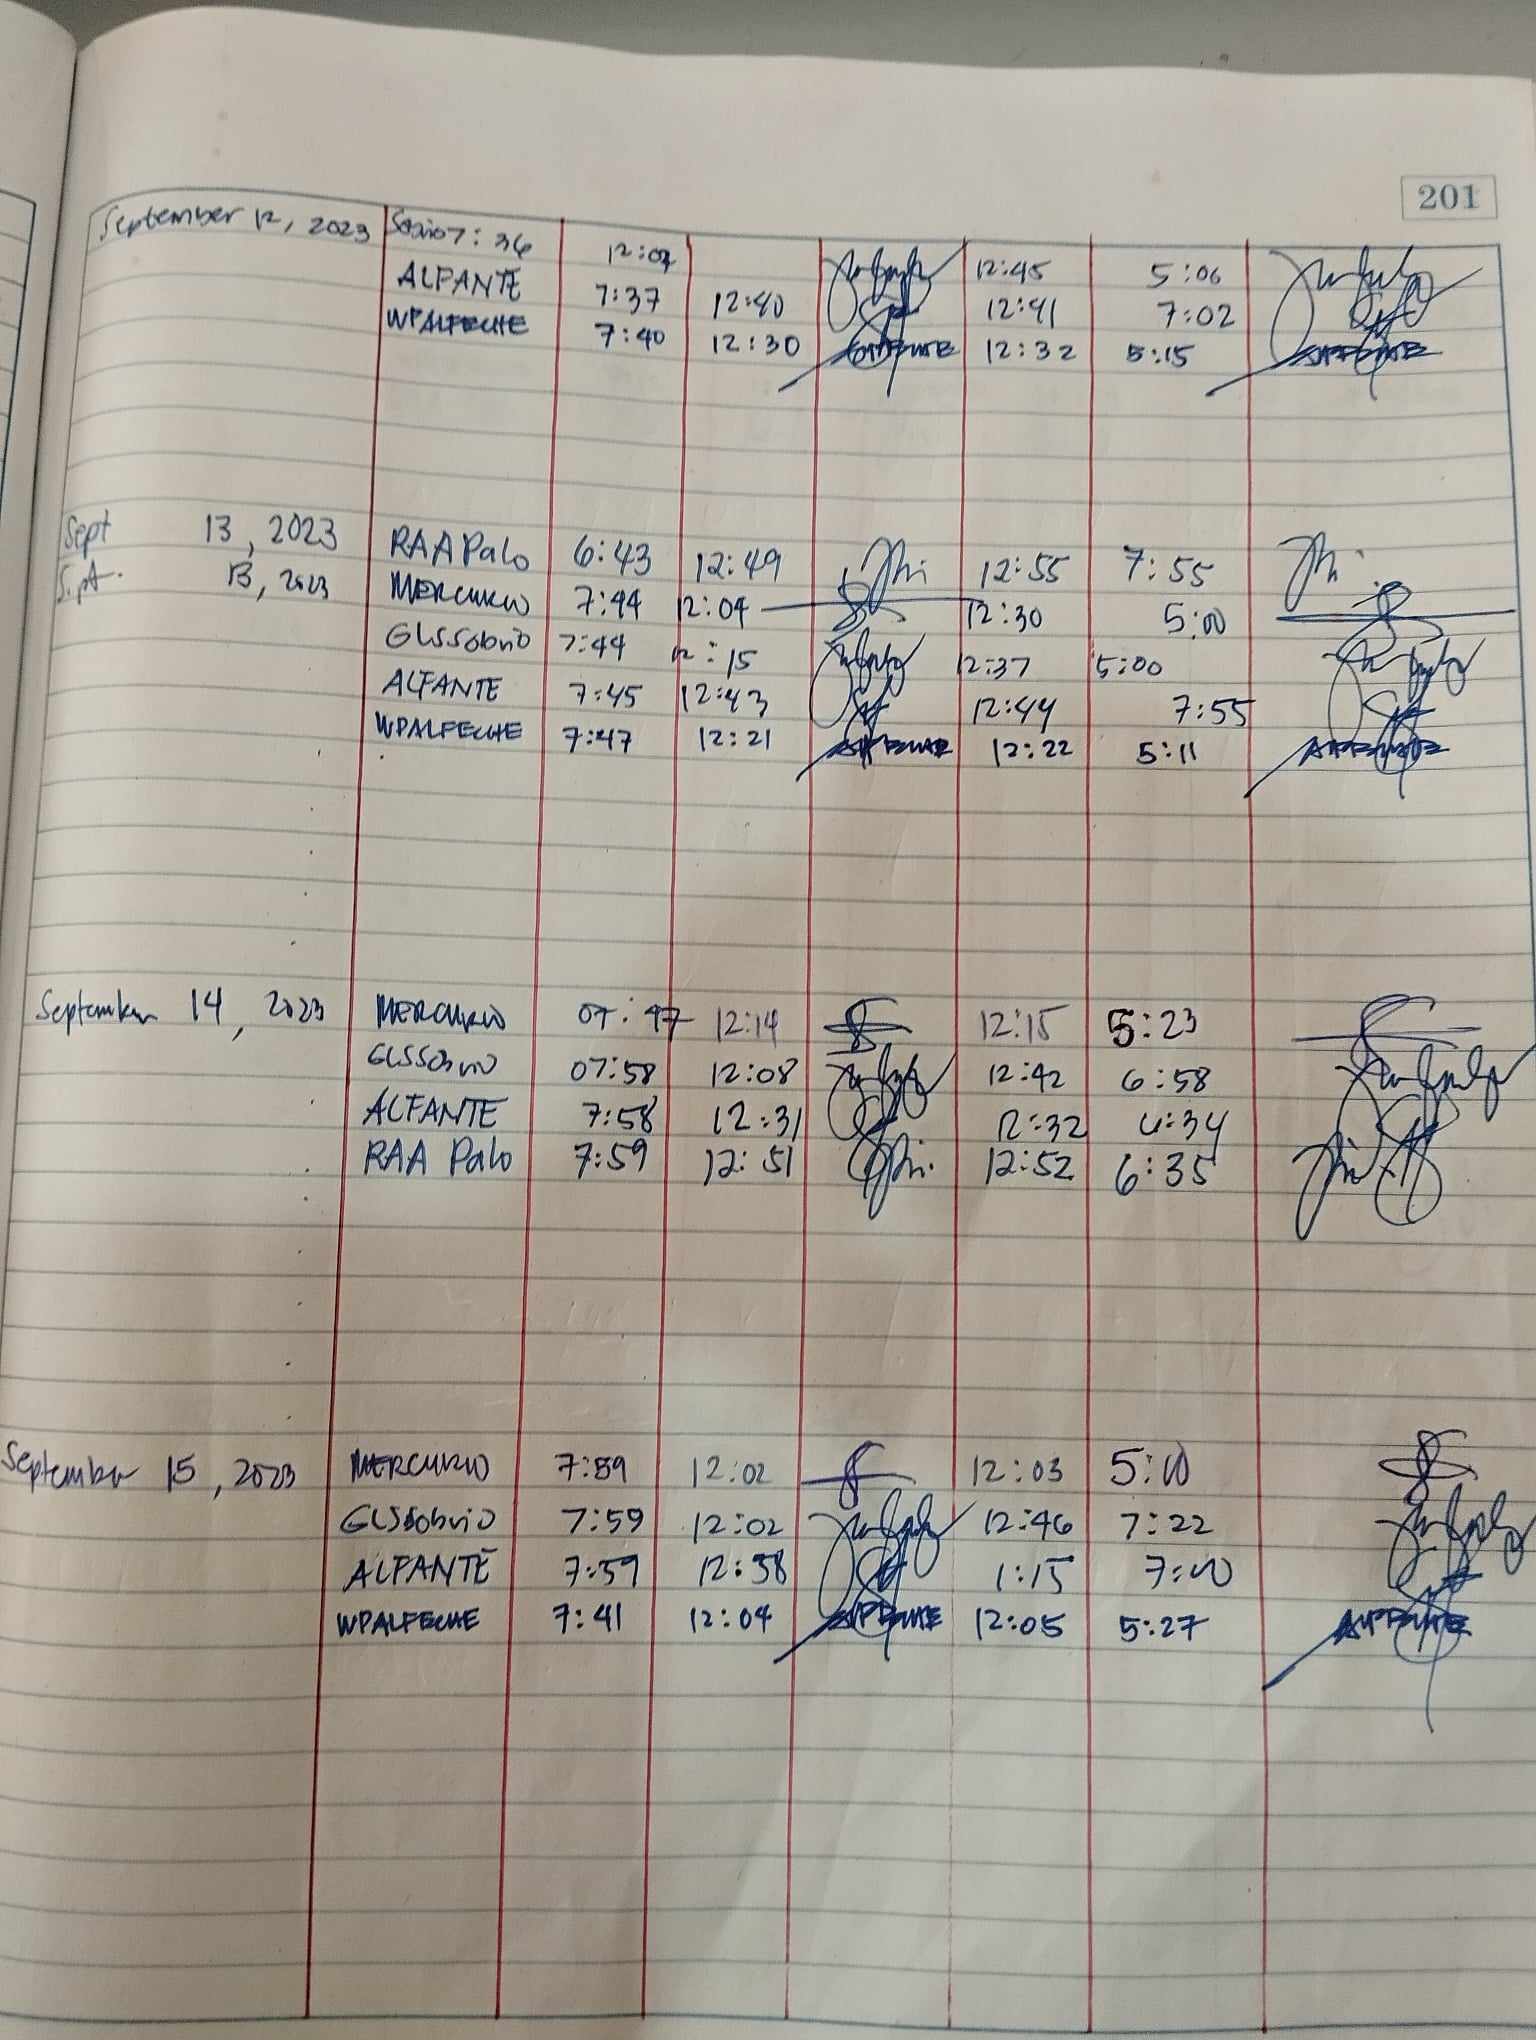 201
September 12, 2023 7:36 12:07 12:45 5:06
ALFANTE 7:37 12:40 12:41 7:02
WPALFECHE 7:40 12:30 12:32 5:15
Sept 13, 2023 RAA Palo 6:43 12:49 12:55 7:55
Sept. 13, 2023 MERCURIO 7:44 12:04 12:30 5:00
GLSSobrio 7:44 12:15 12:37 5:00
ALFANTE 7:45 12:43 12:44 7:55
WPALFECHE 7:47 12:21 12:22 5:11
September 14, 2023 MERCURIO 07:47 12:14 12:15 5:23
GLSSobrio 07:58 12:08 12:42 6:58
ALFANTE 7:58 12:31 12:32 6:34
RAA Palo 7:59 12:51 12:52 6:35
September 15, 2023 MERCURIO 7:59 12:02 12:03 5:00
GLSSobrio 7:59 12:02 12:46 7:22
ALFANTE 7:59 12:58 1:15 7:00
WPALFECHE 7:41 12:04 12:05 5:27